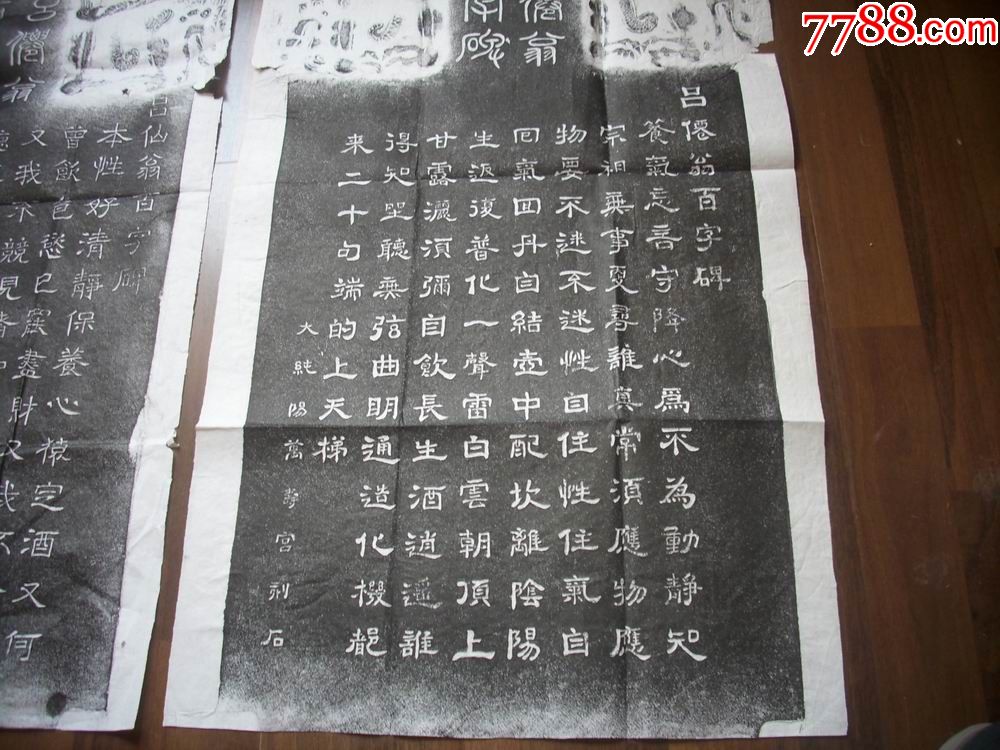 7788.com
僊翁
字碑
呂僊翁百字碑
養氣忘言守降心爲不為動靜知
宗祖無事更尋誰真常須應物應
物要不迷不迷性自住性住氣自
回氣回丹自結壺中配坎離陰陽
生返復普化一聲雷白雲朝頂上
甘露灑須彌自飲長生酒逍遥誰
得知坐聽無弦曲明通造化機都
来二十句端的上天梯
大純陽萬壽宮刻石
呂僊翁
呂仙翁百字碑
本性好清靜保養心猿定酒又何
曾飲色慾已罷盡財又我
又我不競見